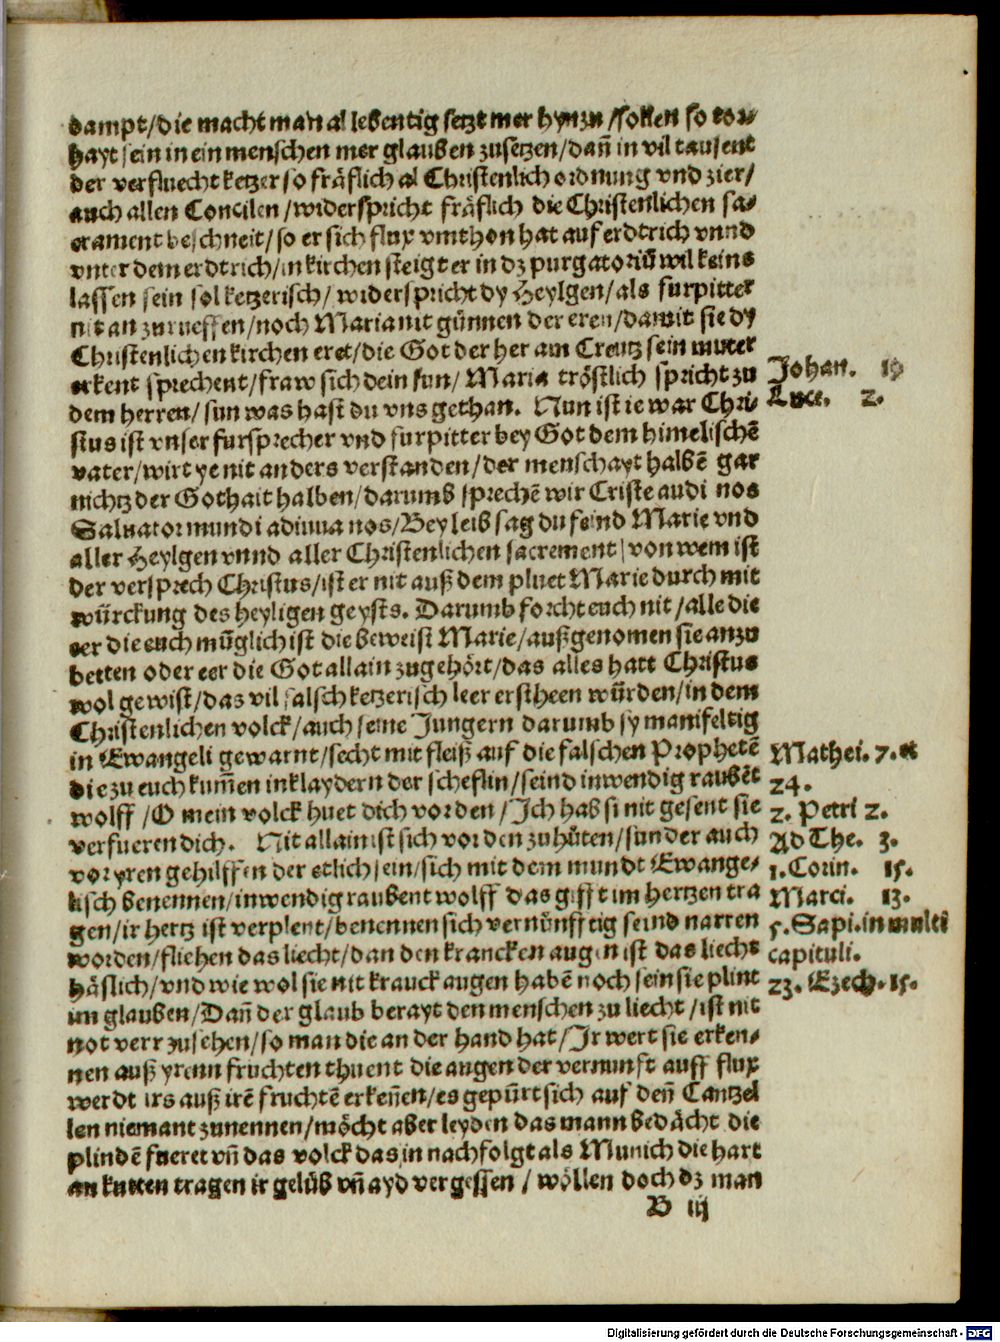 dampt/die macht man al lebentig setzt mer hynzu/sollen so tor-
hayt sein in ein menschen mer glauben zusetzen/dañ in vil tausent
der verfluecht ketzer so fräflich al Christenlich ordnung vnd zier/
auch allen Concilen/widerspricht fräflich die Christenlichen sa-
crament beschneit/so er sich flux vmthon hat auf erdtrich vnnd
vnter dem erdtrich/in kirchen steigt er in dz purgatoriũ wil keins
lassen sein sol ketzerisch/widerspricht dy Heylgen/als furpitter
nit an zurueffen/noch Maria nit günnen der eren/damit sie dy
Christenlichen kirchen eret/die Got der her am Creutz sein muter
erkent sprechent/fraw sich dein sun/Maria tröstlich spricht zu
dem herren/sun was hast du vns gethan. Nun ist ie war Chri-
stus ist vnser fursprecher vnd furpitter bey Got dem himelischẽ
vater/wirt ye nit anders verstanden/der menschayt halbẽ gar
nichtz der Gothait halben/darumb sprechẽ wir Criste audi nos
Saluator mundi adiuua nos/Bey leib sag du feind Marie vnd
aller Heylgen vnnd aller Christenlichen sacrement/von wem ist
der versprech Christus/ist er nit auß dem pluet Marie durch mit
würckung des heyligen geysts. Darumb forcht euch nit/alle die
eer die euch müglich ist die beweist Marie/außgenomen sie anzu
betten oder eer die Got allain zugehört/das alles hatt Christus
wol gewist/das vil falsch ketzerisch leer erstheen würden/in dem
Christenlichen volck/auch seine Jungern darumb sy manifeltig
in Ewangeli gewarnt/secht mit fleiß auf die falschen Prophetẽ
die zu euch kum̃en in klaydern der scheflin/seind inwendig raubẽt
wolff/O mein volck huet dich vor den/Ich hab si nit gesent sie
verfueren dich. Nit allain ist sich vor den zuhüten/sunder auch
vor yren gehilffen der etlich sein/sich mit dem mundt Ewange-
lisch benennen/inwendig raubent wolff das gifft im hertzen tra
gen/ir hertz ist verplent/benennen sich vernünfftig seind narren
worden/fliehen das liecht/dan den krancken augen ist das liecht
häslich/vnd wie wol sie nit kranck augen habẽ noch sein sie plint
im glauben/Dañ der glaub berayt den menschen zu liecht/ist nit
not verr zusehen/so man die an der hand hat/Ir wert sie erken-
nen auß yrenn fruchten thuent die augen der vernunft auff flux
werdt irs auß irẽ fruchtẽ erkeñen/es gepürt sich auf deñ Cantzel
len niemant zunennen/möcht aber leyden das mann bedächt die
plindẽ fueret vñ das volck das in nachfolgt als Munich die hart
an kutten tragen ir gelüb vñ ayd vergessen/wöllen doch dz man
B iij
Johan. 19
Luce. 2.
Mathei. 7. et
24.
2. Petri 2.
Ad The. 3.
1. Corin. 15.
Marci. 13.
5. Sapi. in multi
capituli.
23. Ezech. 15.
Digitalisierung gefördert durch die Deutsche Forschungsgemeinschaft - DFG